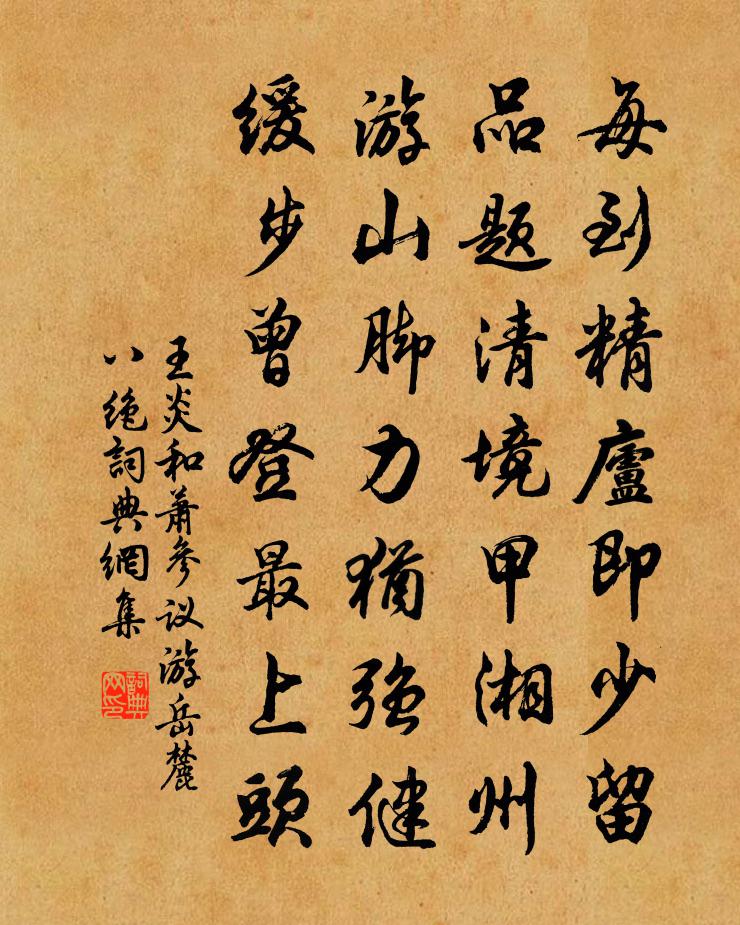 每到精廬即少留
品题清境甲湘州
游山脚力猶强健
缓步曾登最上頭
王炎和萧參议游岳麓
八绝詞典網集
詞典网印